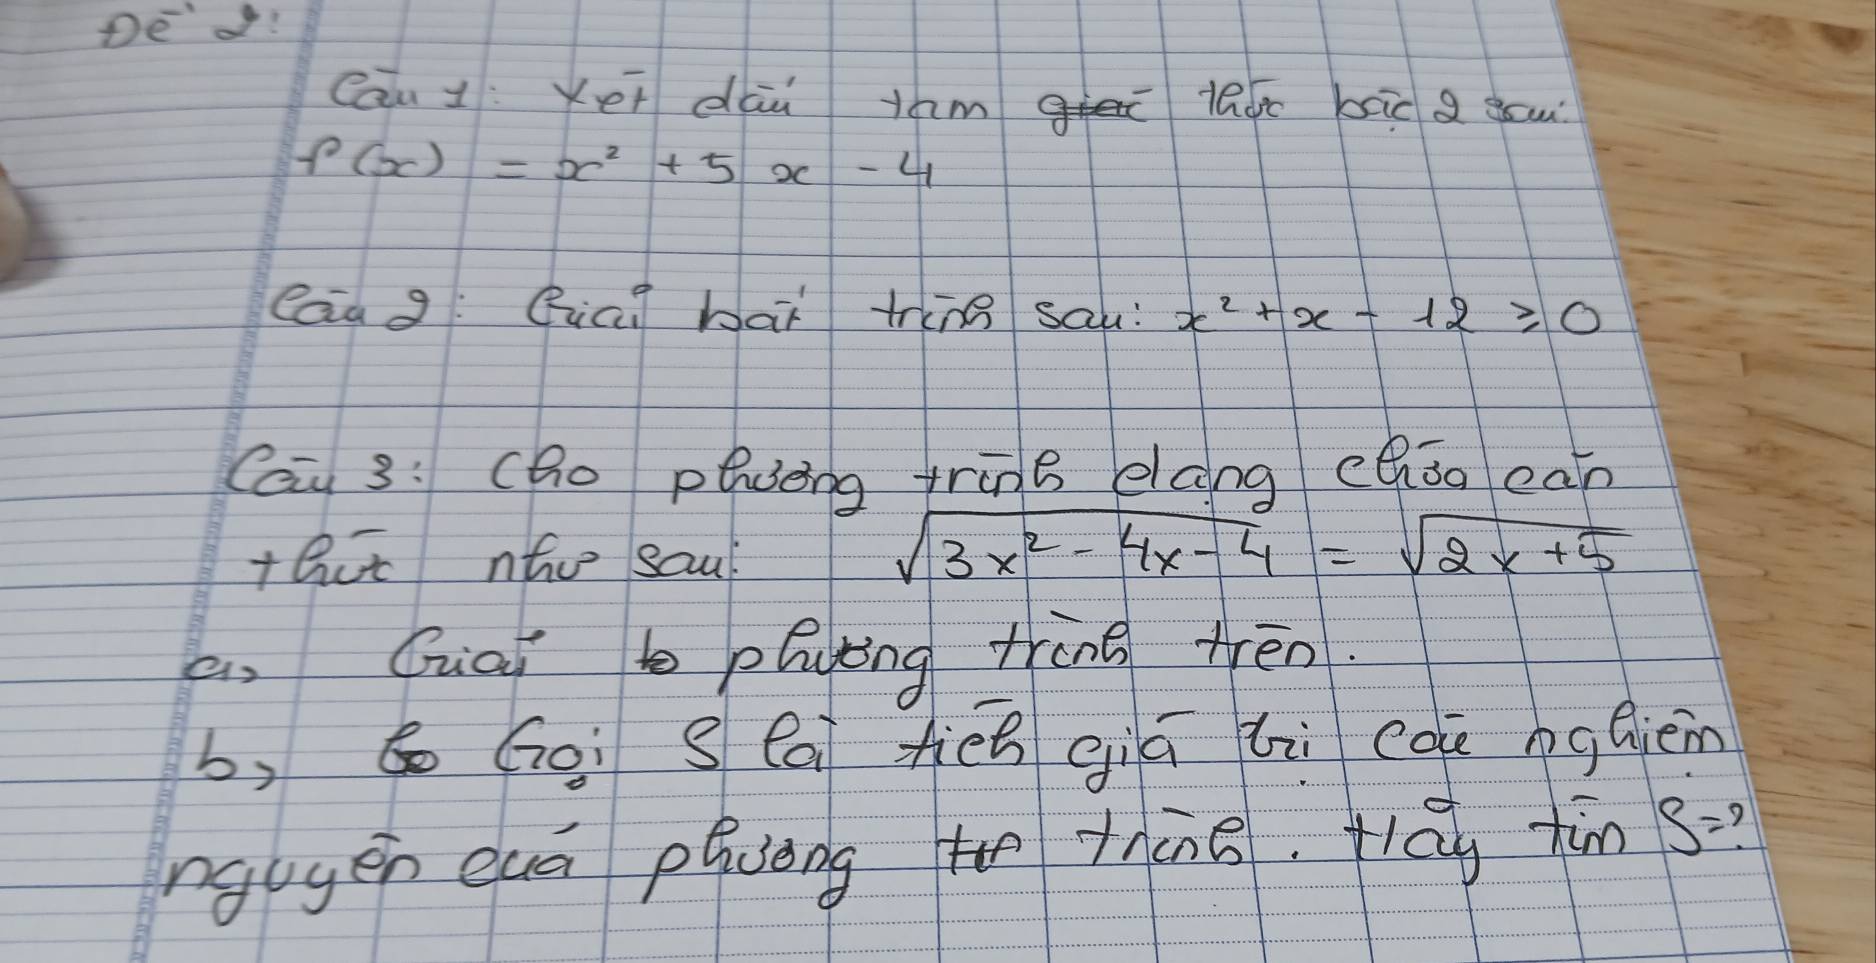 Đề 2:
Câu 1: Xét dấu tam thức bậc 2 sau:
f(x) = x² + 5x - 4
Câu 2: Giải bất trình sau: x² + x - 12 ≥ 0
Câu 3: Cho phương trình dạng chứa căn
thức như sau: √(3x² - 4x - 4) = √(2x + 5)
a, Giải phương trình trên.
b, Gọi S là tích giá trị các nghiệm
nguyên của phương trình. Hãy tìm S=?